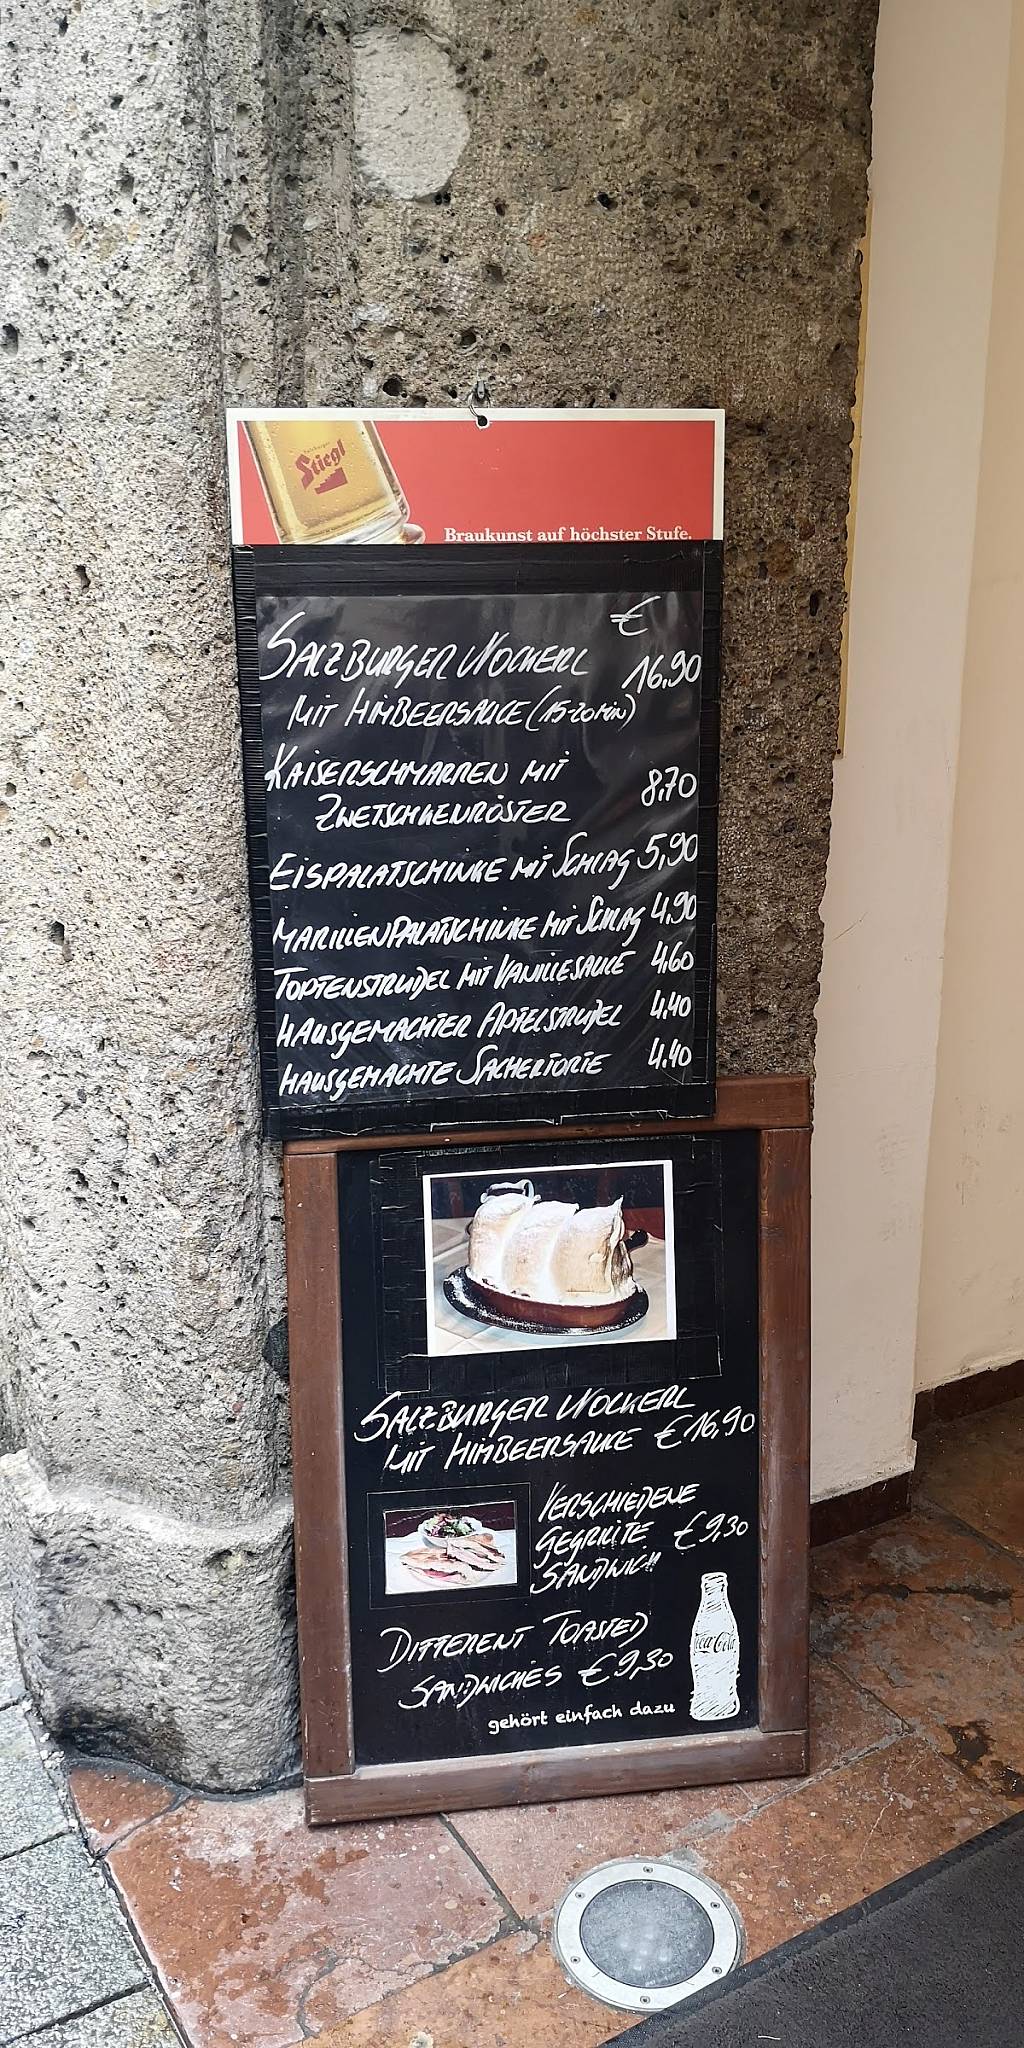 Salzburger
Stiegl
Braukunst auf höchster Stufe.
€
SALZBURGER NOCKERL 16,90
MIT HIMBEERSAUCE (15-20 MIN)
KAISERSCHMARREN MIT
ZWETSCHKENRÖSTER 8,70
EISPALATSCHINKE MIT SCHLAG 5,90
MARILLENPALATSCHINKE MIT SCHLAG 4,90
TOPFENSTRUDEL MIT VANILLESAUCE 4,60
HAUSGEMACHTER APFELSTRUDEL 4,40
HAUSGEMACHTE SACHERTORTE 4,40
SALZBURGER NOCKERL
MIT HIMBEERSAUCE € 16,90
VERSCHIEDENE
GEGRILLTE € 9,30
SANDWICH
DIFFERENT TOASTED
SANDWICHES € 9,30
Coca-Cola
gehört einfach dazu